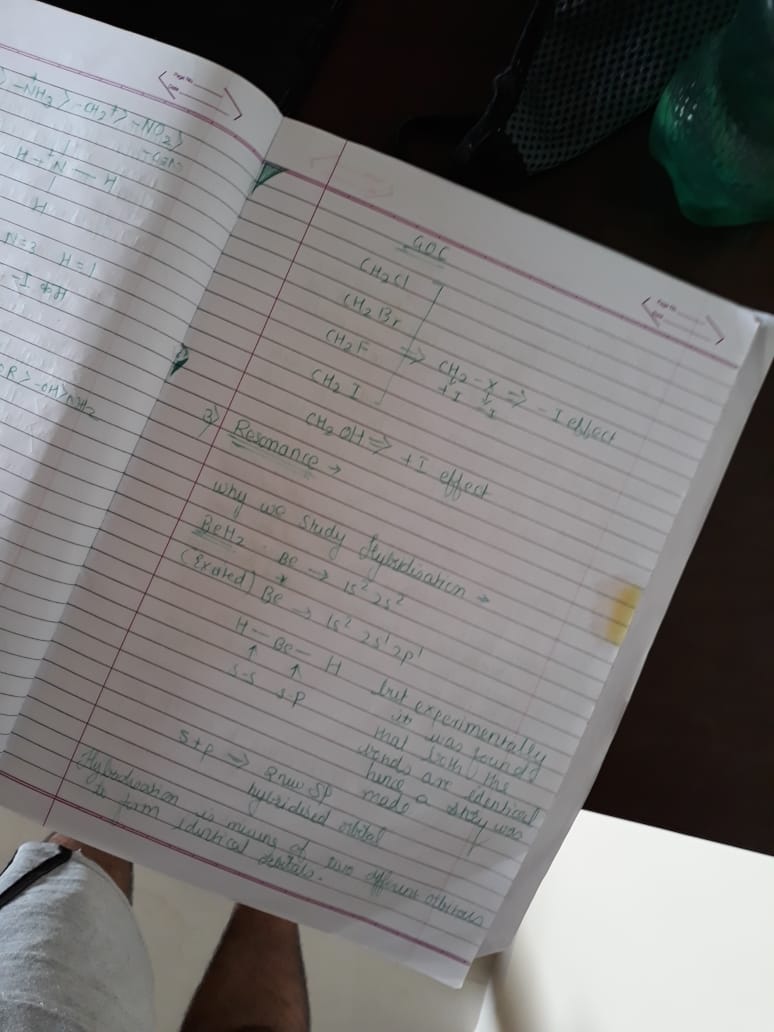 -NH₂> -CH₂⁺> -NO₂>
H-⁺N-H
H
N=3 H=1
-I
OR> -OH>NH₂
GOC
CH₂Cl
CH₂Br
CH₂F
CH₂I
⇒ CH₂-X ⇒ -I effect
+I -I
CH₂OH ⇒ +I effect
3) Resonance →
why we study Hybridisation →
BeH₂ . Be → 1s² 2s²
(Exated) Be* → 1s² 2s¹ 2p¹
H-Be-H
↑ ↑
s-s s-p
but experimentally
it was found
that both the
bonds are identical
hence a story was
made
s+p → 2 new sp
hybridised orbital
Hybridisation is mixing of two different
to form identical orbitals.